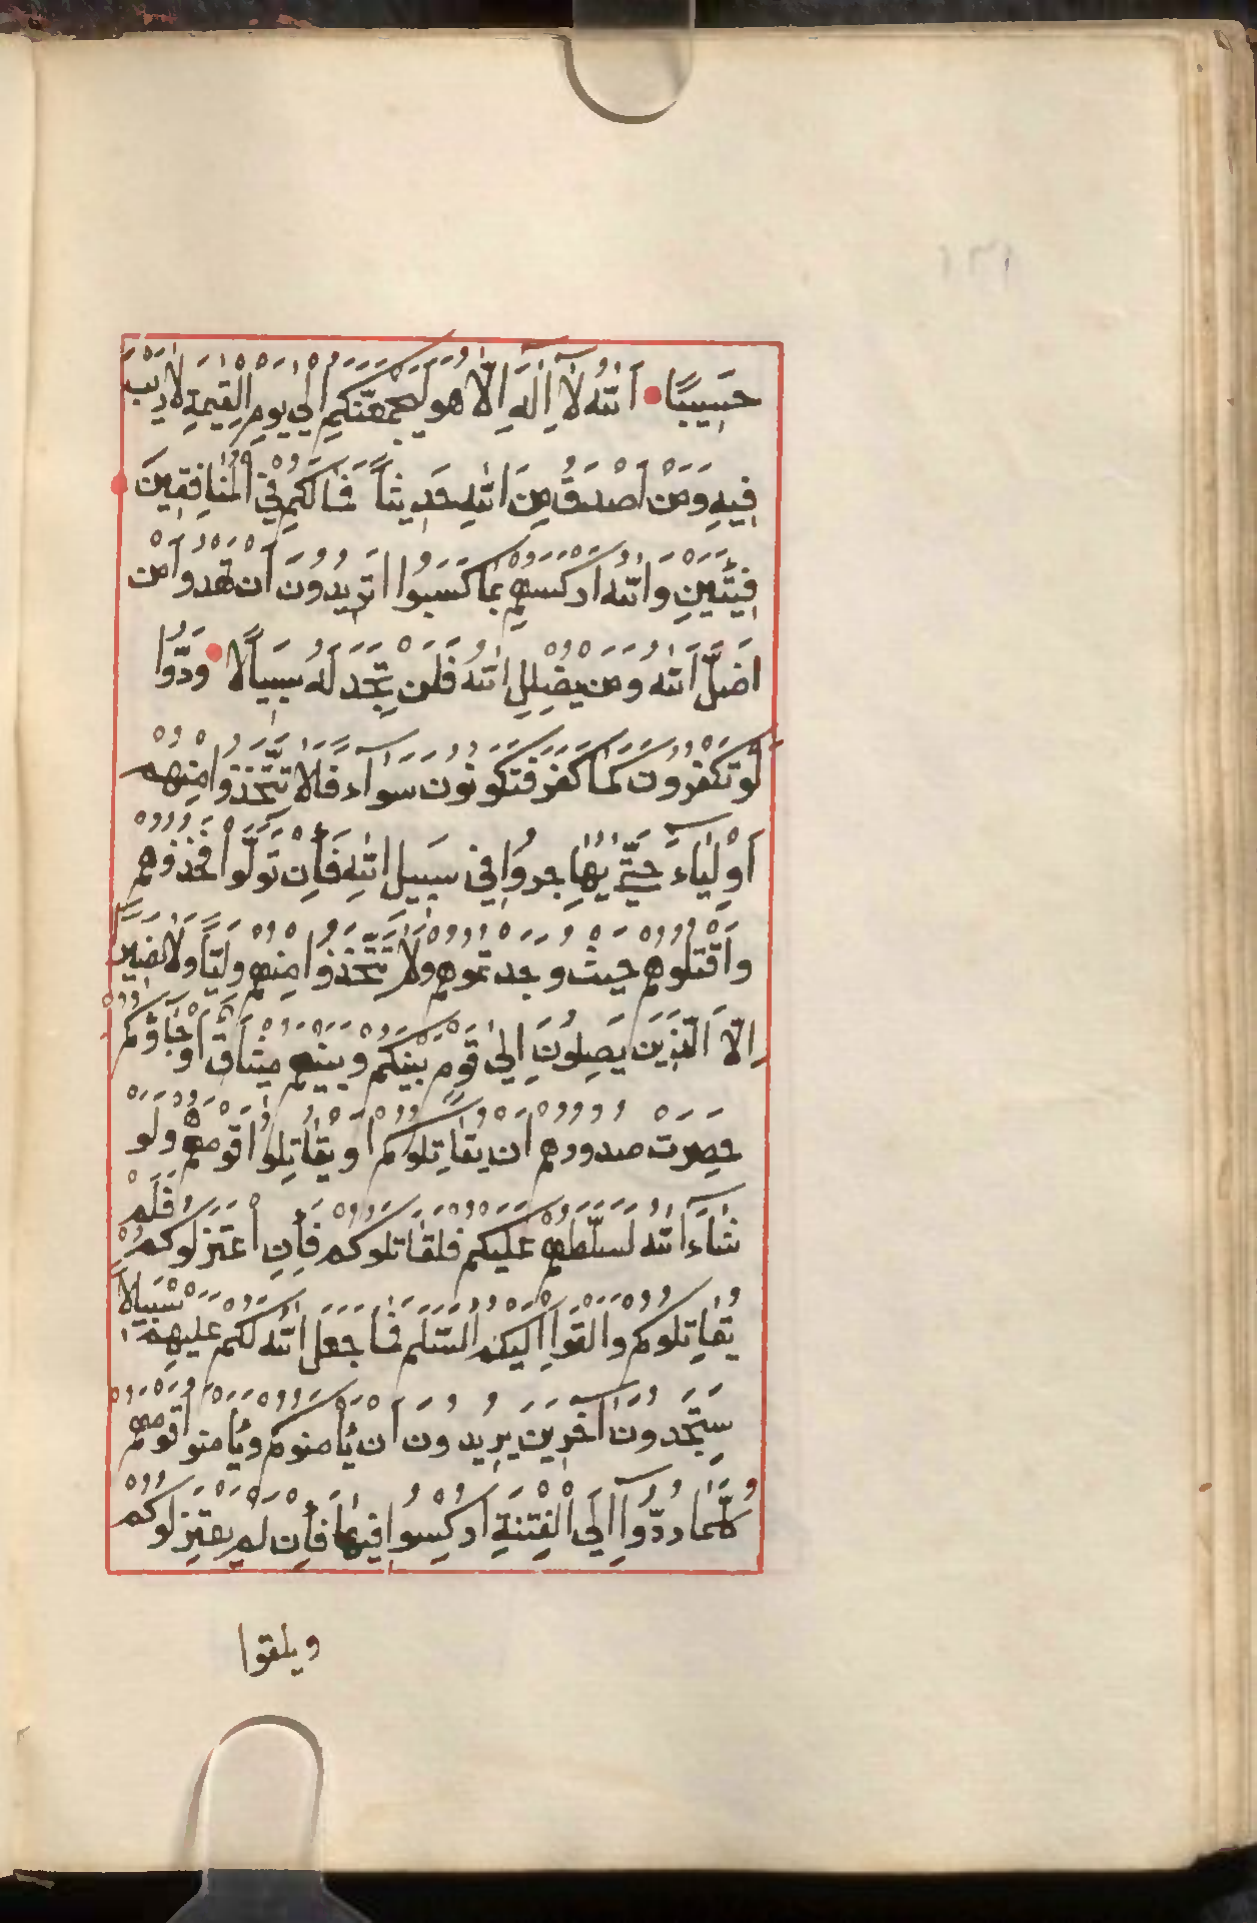 حَسِيبًا اَللّٰهُ لَآ اِلٰهَ اِلَّا هُوَ لَيَجْمَعَنَّكُمْ اِلٰى يَوْمِ الْقِيٰمَةِ لَا رَيْبَ
فِيهِ وَمَنْ اَصْدَقُ مِنَ اللّٰهِ حَدِيثاً فَمَا لَكُمْ فِي الْمُنَافِقِينَ
فِئَتَيْنِ وَاللّٰهُ اَرْكَسَهُمْ بِمَا كَسَبُوا اَتُرِيدُونَ اَنْ تَهْدُوا مَنْ
اَضَلَّ اللّٰهُ وَمَنْ يُضْلِلِ اللّٰهُ فَلَنْ تَجِدَ لَهُ سَبِيلًا وَدُّوا
لَوْ تَكْفُرُونَ كَمَا كَفَرُ فَتَكُونُونَ سَوَآءً فَلَا تَتَّخِذُوا مِنْهُمْ
اَوْلِيَاءَ حَتّٰى يُهَاجِرُوا فِي سَبِيلِ اللّٰهِ فَاِنْ تَوَلَّوْا فَخُذُوهُمْ
وَاقْتُلُوهُمْ حَيْثُ وَجَدْتُمُوهُمْ وَلَا تَتَّخِذُوا مِنْهُمْ وَلِيّاً وَلَا نَصِيراً
اِلَّا الَّذِينَ يَصِلُونَ اِلٰى قَوْمٍ بَيْنَكُمْ وَبَيْنَهُمْ مِيثَاقٌ اَوْ جَآؤُكُمْ
حَصِرَتْ صُدُورُهُمْ اَنْ يُقَاتِلُوكُمْ اَوْ يُقَاتِلُوا قَوْمَهُمْ وَلَوْ
شَآءَ اللّٰهُ لَسَلَّطَهُمْ عَلَيْكُمْ فَلَقَاتَلُوكُمْ فَاِنِ اعْتَزَلُوكُمْ فَلَمْ
يُقَاتِلُوكُمْ وَاَلْقَوْا اِلَيْكُمُ السَّلَمَ فَمَا جَعَلَ اللّٰهُ لَكُمْ عَلَيْهِمْ سَبِيلًا
سَتَجِدُونَ آخَرِينَ يُرِيدُونَ اَنْ يَأْمَنُوكُمْ وَيَأْمَنُوا قَوْمَهُمْ
كُلَّمَا رُدُّوا اِلَى الْفِتْنَةِ اُرْكِسُوا فِيهَا فَاِنْ لَمْ يَعْتَزِلُوكُمْ
ويلقوا